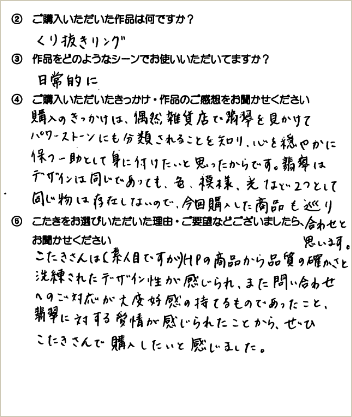 ② ご購入いただいた作品は何ですか？
くり抜きリング
③ 作品をどのようなシーンでお使いいただいてますか？
日常的に
④ ご購入いただいたきっかけ・作品のご感想をお聞かせください
購入のきっかけは、偶然雑貨店で翡翠を見かけて
パワーストーンにも分類されることを知り、心を穏やかに
保つ一助として身に付けたいと思ったからです。翡翠は
デザインは同じであっても、色、模様、光など2つとして
同じ物は存在しないので、今回購入した商品も巡り
合わせと
思います。
⑤ こたきをお選びいただいた理由・ご要望などございましたら、
お聞かせください
こたきさんは(素人目ですが)HPの商品から品質の確かさと
洗練されたデザイン性が感じられ、また問い合わせ
へのご対応が大変好感の持てるものであったこと、
翡翠に対する愛情が感じられたことから、ぜひ
こたきさんで購入したいと感じました。